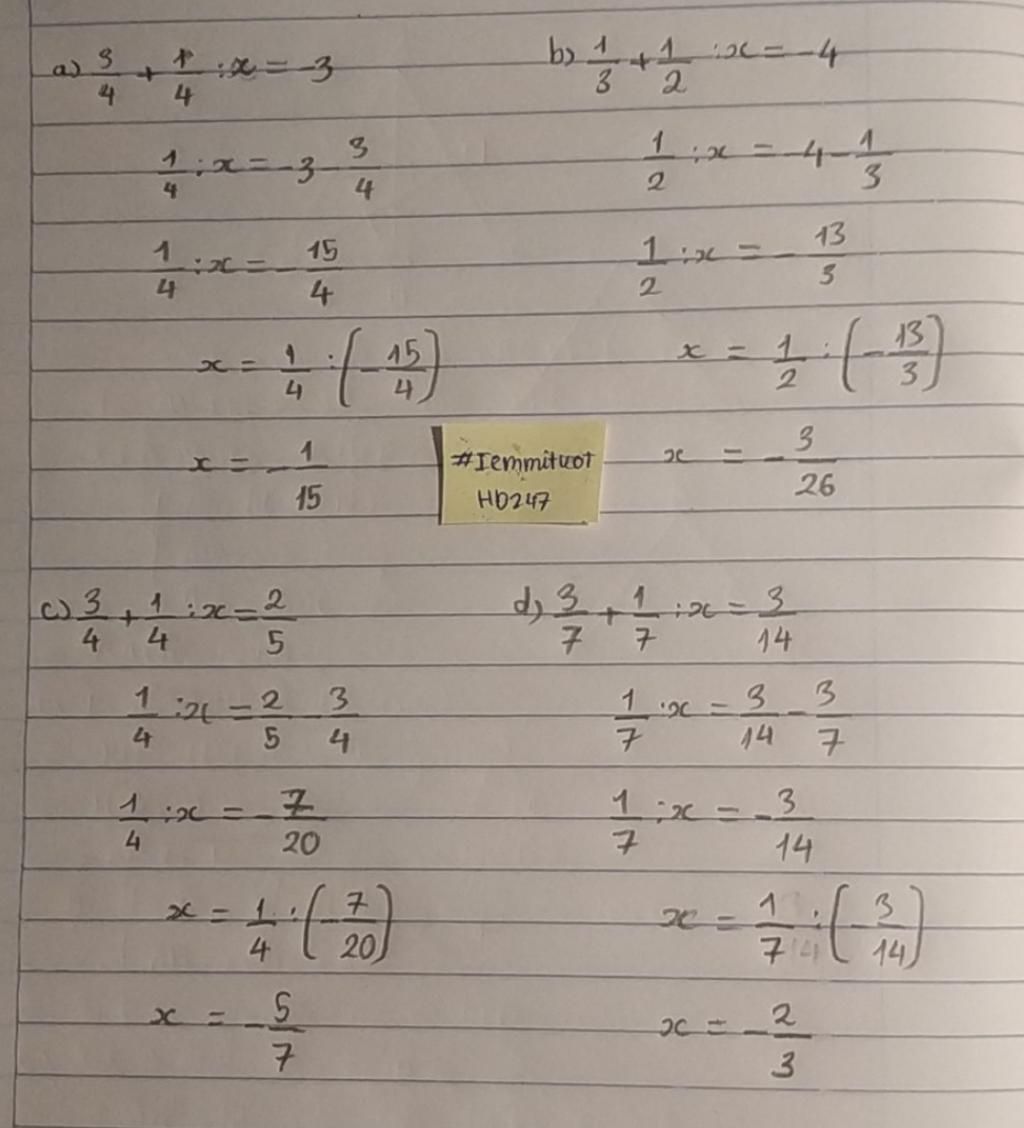 a) 3/4 + 1/4 : x = -3
1/4 : x = -3 - 3/4
1/4 : x = -15/4
x = 1/4 : (-15/4)
x = -1/15
b) 1/3 + 1/2 : x = -4
1/2 : x = -4 - 1/3
1/2 : x = -13/3
x = 1/2 : (-13/3)
x = -3/26
#Iemmituot
HD247
c) 3/4 + 1/4 : x = 2/5
1/4 : x = 2/5 - 3/4
1/4 : x = -7/20
x = 1/4 : (-7/20)
x = -5/7
d) 3/7 + 1/7 : x = 3/14
1/7 : x = 3/14 - 3/7
1/7 : x = -3/14
x = 1/7 : (-3/14)
x = -2/3